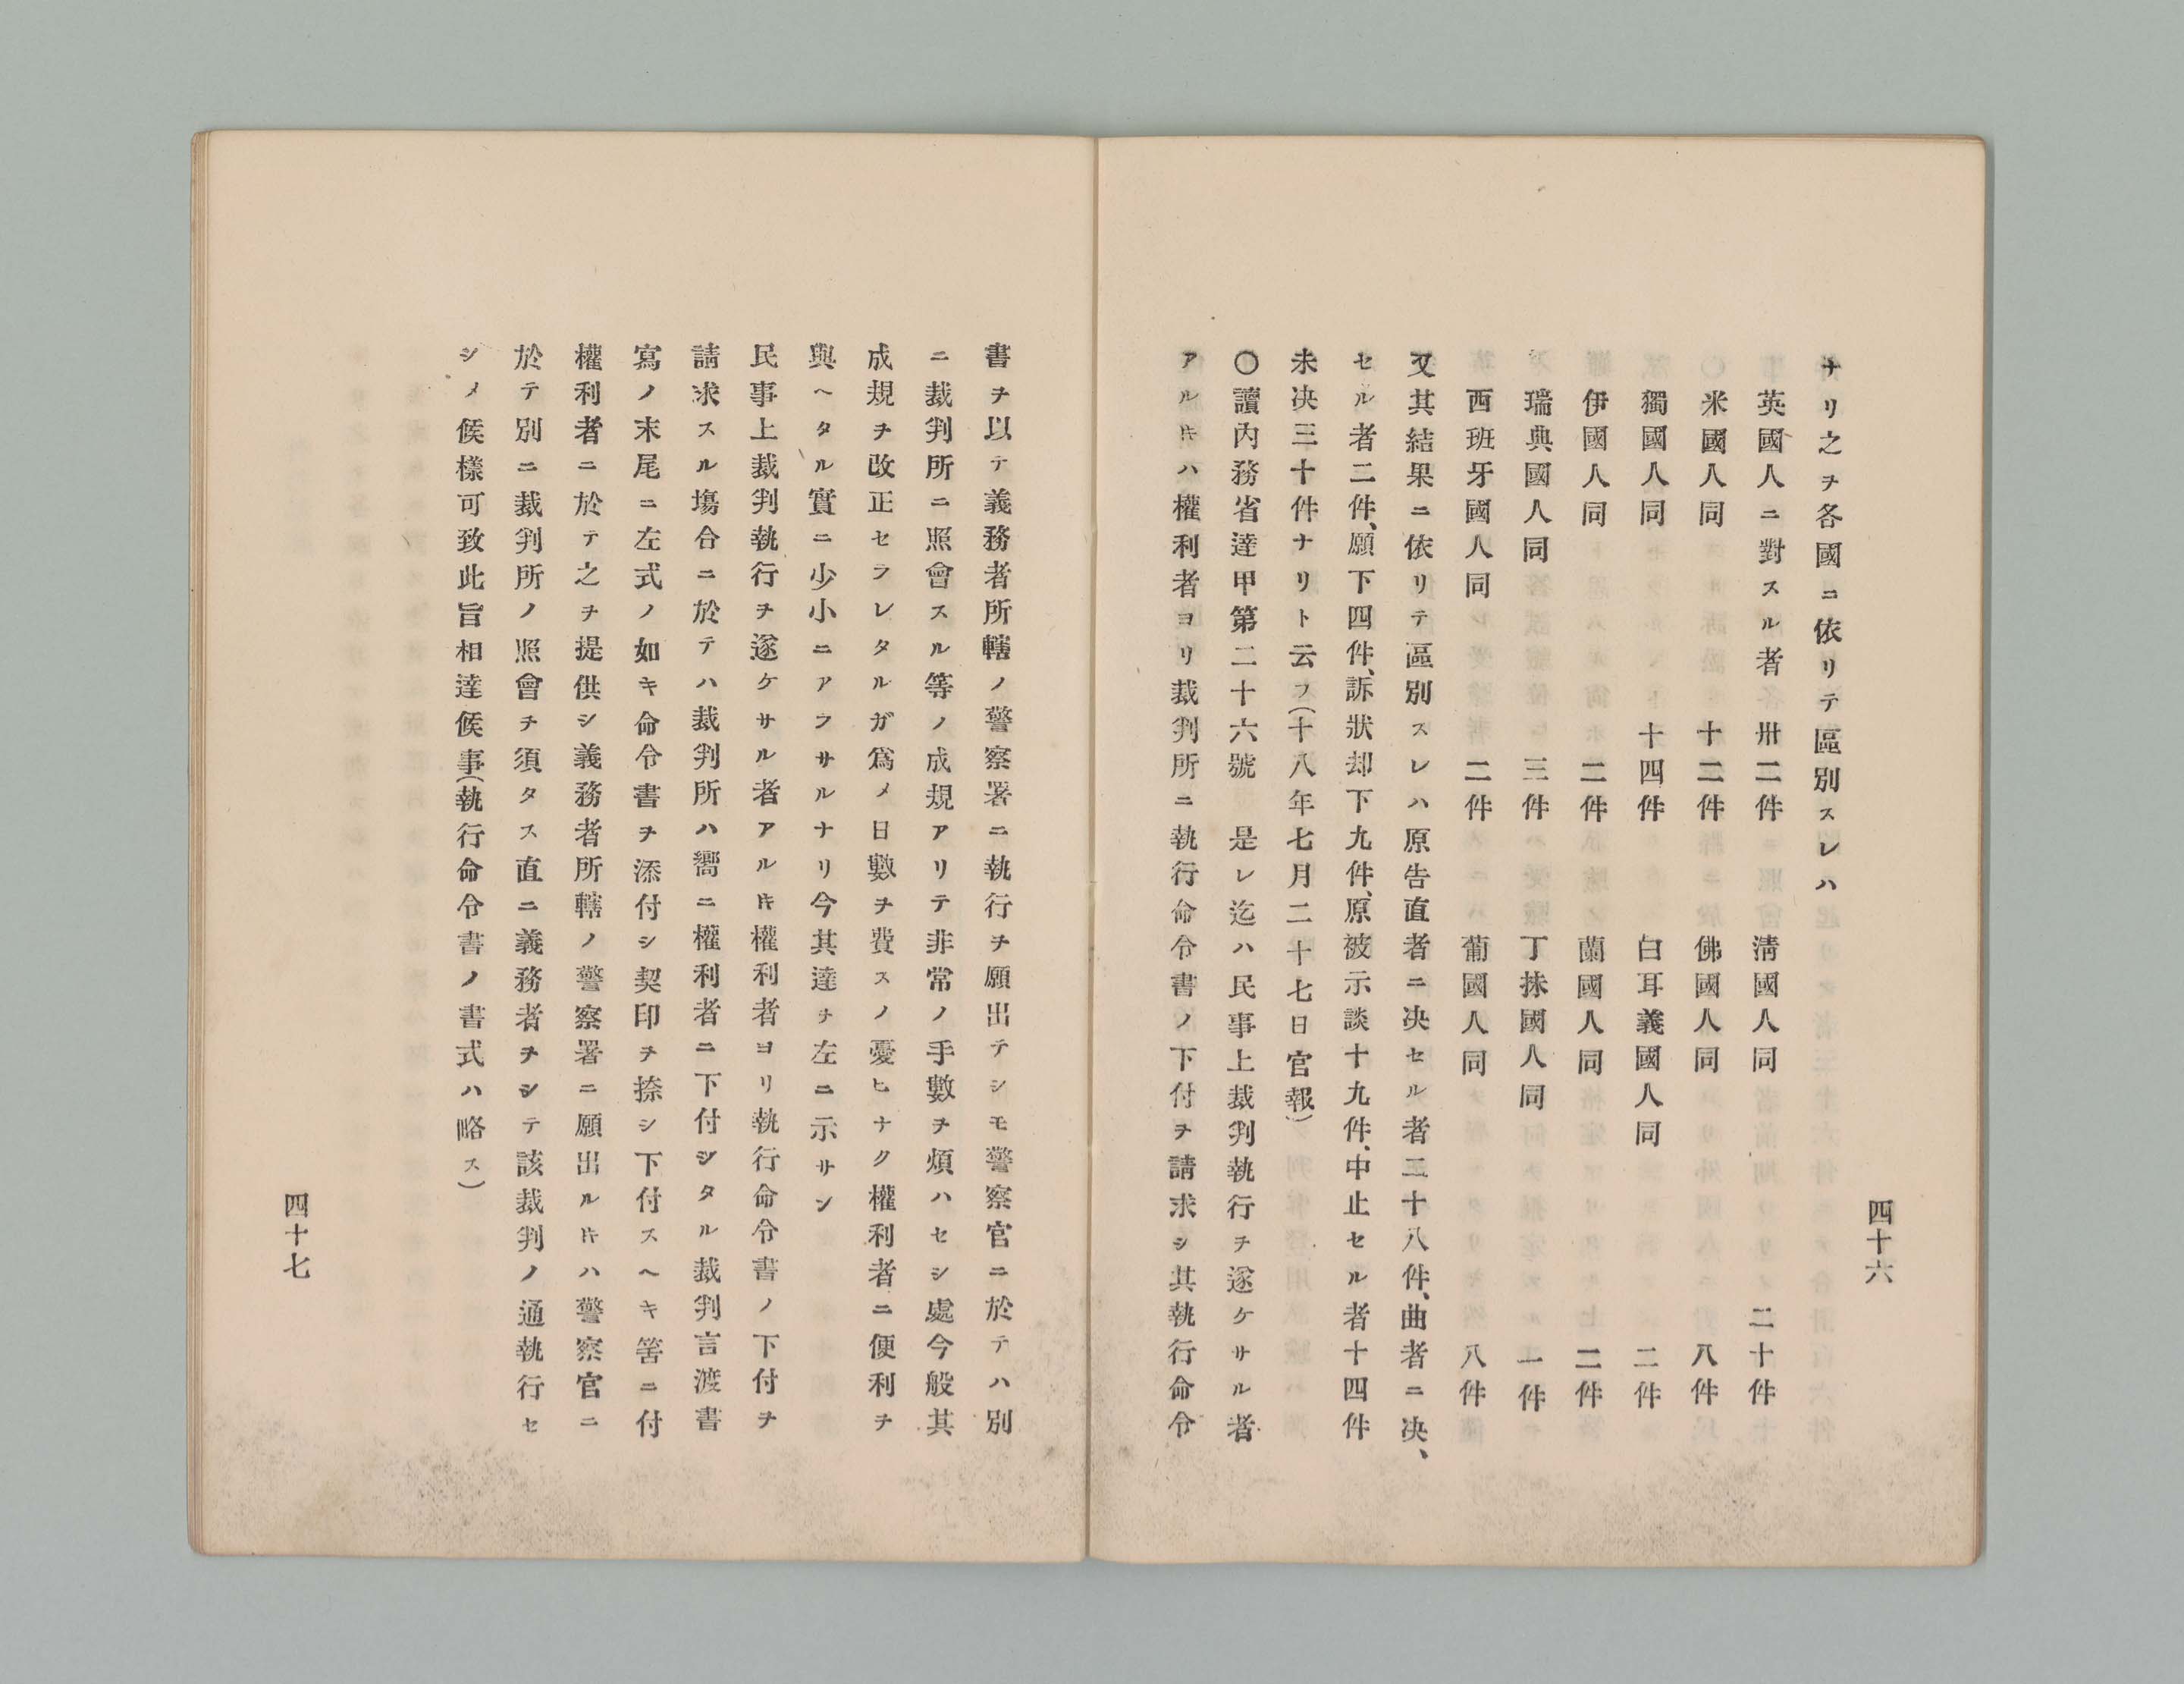 ナリ之ヲ各國ニ依リテ區別スレハ
英國人ニ對スル者 卅二件 淸國人同 二十件
米國人同 十二件 佛國人同 八件
獨國人同 十四件 白耳義國人同 二件
伊國人同 二件 蘭國人同 二件
瑞典國人同 三件 丁抹國人同 一件
西班牙國人同 二件 葡國人同 八件
又其結果ニ依リテ區別スレハ原告直者ニ决セル者二十八件、曲者ニ决、
セル者二件、願下四件、訴狀却下九件、原被示談十九件、中止セル者十四件
未决三十件ナリト云フ(十八年七月二十七日官報)
〇讀內務省達甲第二十六號 是レ迄ハ民事上裁判執行ヲ遂ケサル者
アルㇳキハ權利者ヨリ裁判所ニ執行命令書ノ下付ヲ請求シ其執行命令
四十六
書ヲ以テ義務者所轄ノ警察署ニ執行ヲ願出テシモ警察官ニ於テハ別
ニ裁判所ニ照會スル等ノ成規アリテ非常ノ手數ヲ煩ハセシ處今般其
成規ヲ改正セラレタルガ爲メ日數ヲ費スノ憂ヒナク權利者ニ便利ヲ
與ヘタル實ニ少小ニアラサルナリ今其達ヲ左ニ示サン
民事上裁判執行ヲ遂ケサル者アルㇳキ權利者ヨリ執行命令書ノ下付ヲ
請求スル塲合ニ於テハ裁判所ハ嚮ニ權利者ニ下付シタル裁判言渡書
寫ノ末尾ニ左式ノ如キ命令書ヲ添付シ契印ヲ捺シ下付スヘキ筈ニ付
權利者ニ於テ之ヲ提供シ義務者所轄ノ警察署ニ願出ルㇳキハ警察官ニ
於テ別ニ裁判所ノ照會ヲ須タス直ニ義務者ヲシテ該裁判ノ通執行セ
シメ候樣可致此旨相達候事(執行命令書ノ書式ハ略ス)
四十七